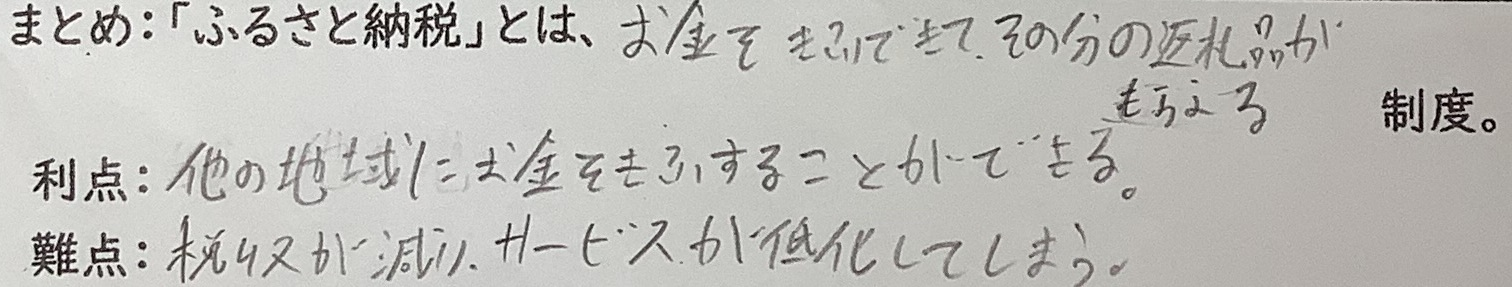 まとめ:「ふるさと納税」とは、お金をきふできて、その分の返礼品が
もらえる 制度。
利点:他の地域にお金をきふすることができる。
難点:税収が減り、サービスが低化してしまう。